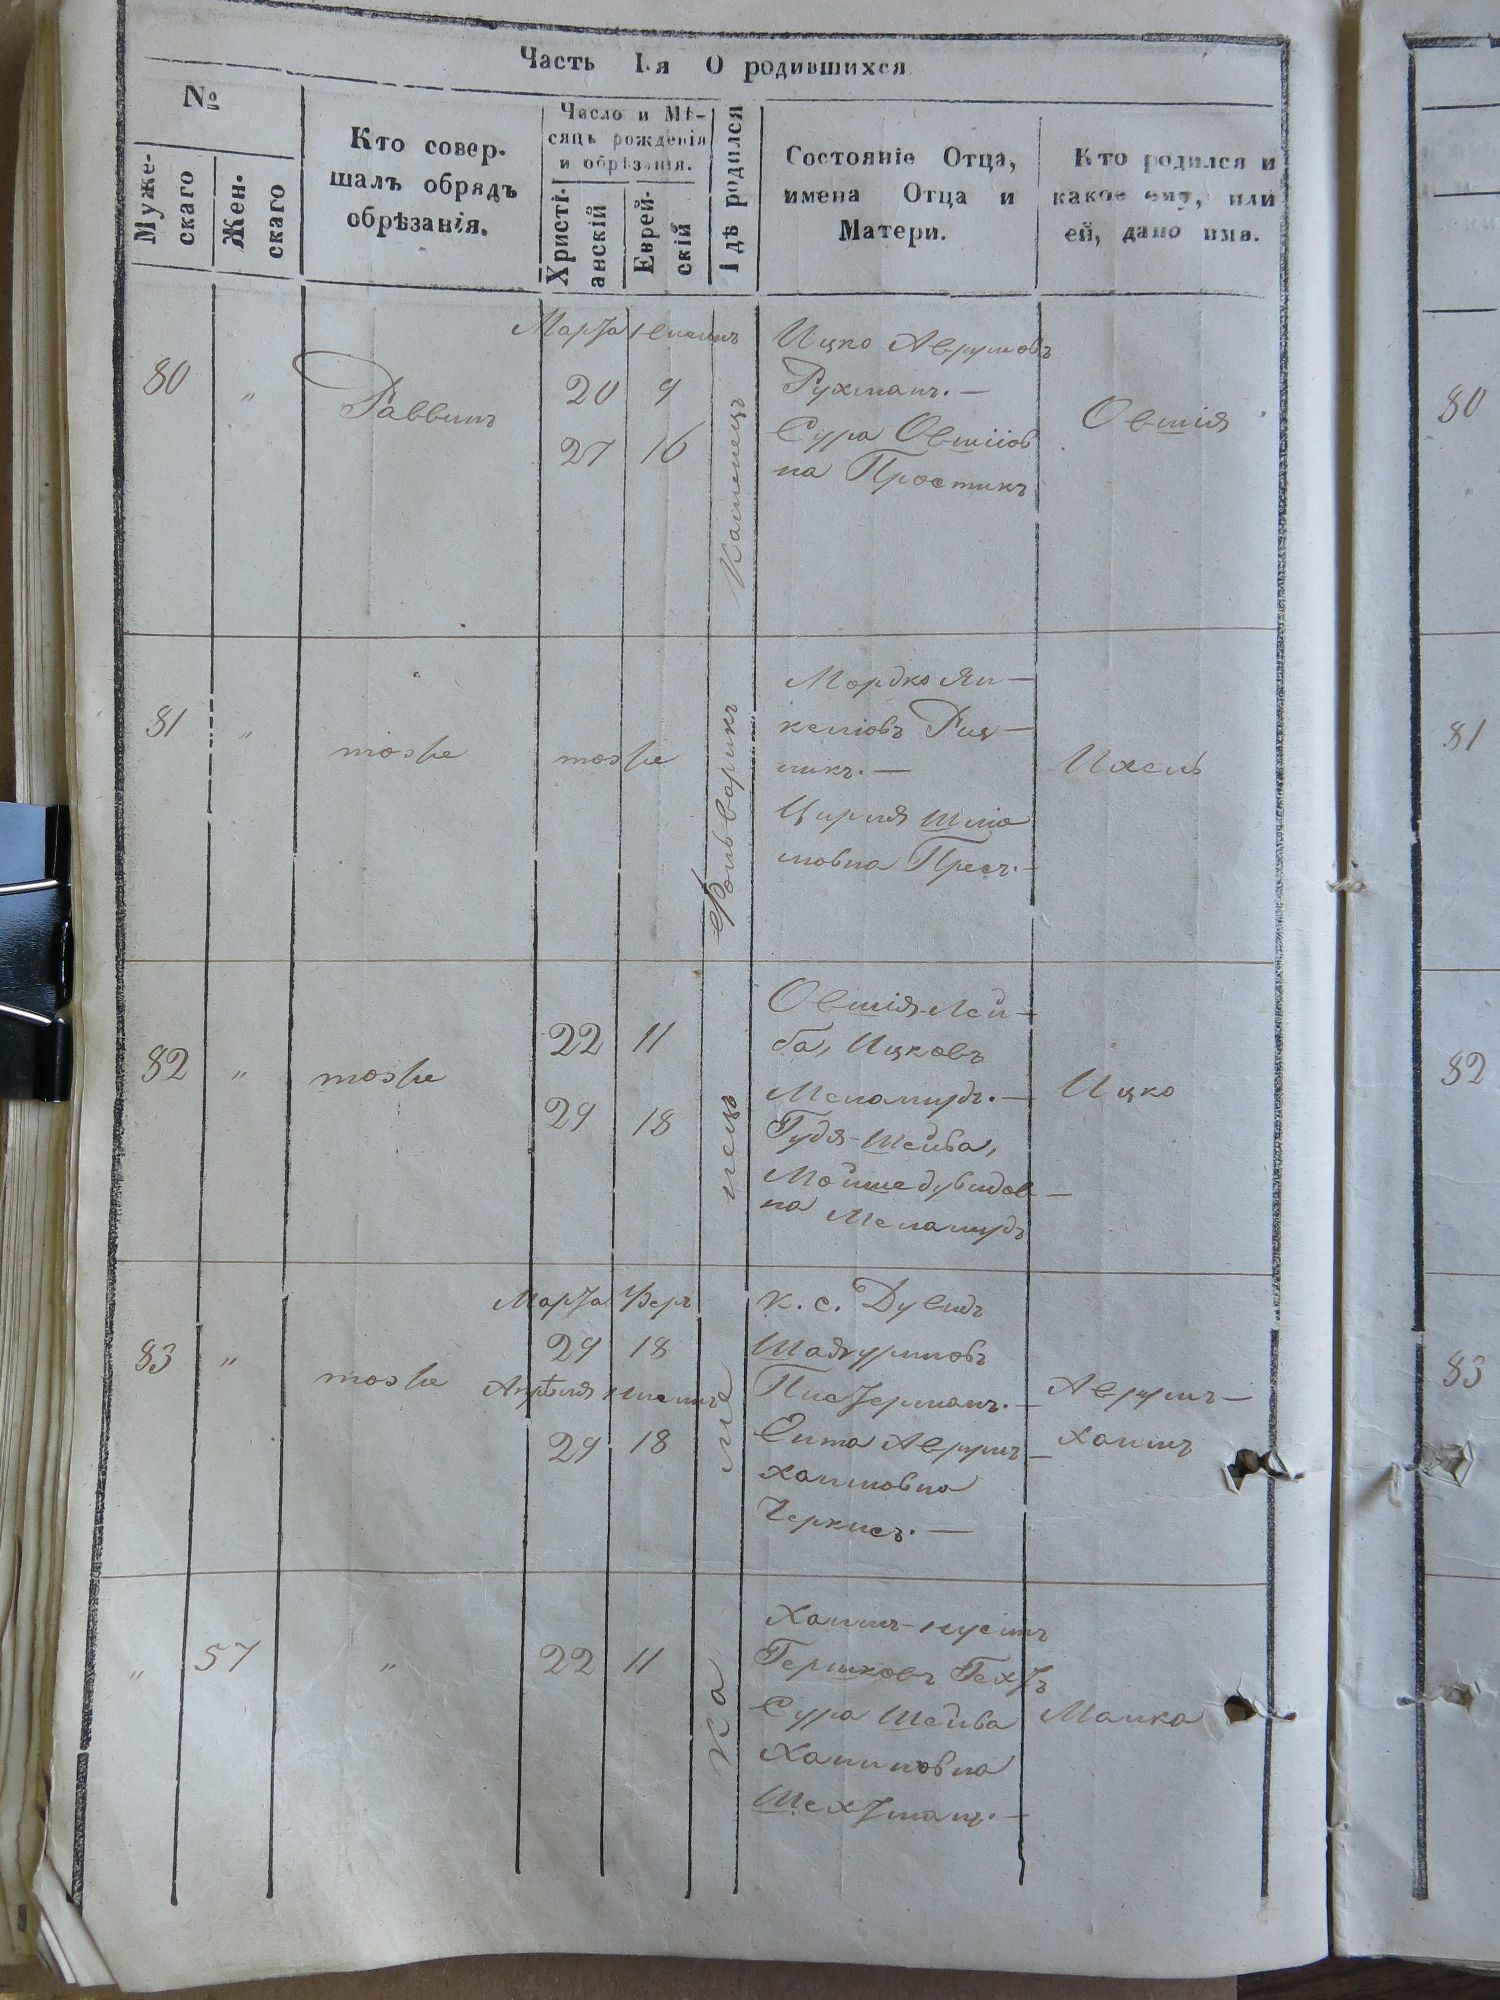 Часть I.я О родившихся
№
Муже-
скаго
Жен.
скаго
Кто совер-
шалъ обрядъ
обрѣзанія.
Число и Мѣ-
сяцъ рожденія
и обрѣзанія.
Христі-
анскій
Еврей-
скій
Гдѣ родился
Состояніе Отца,
имена Отца и
Матери.
Кто родился и
какое ему, или
ей, дано имя.
Марта Нисанъ
80 „ Раввинъ
20 9
27 16
Каменецъ
Ицко Аврумовъ
Рухманъ. —
Сура Овшіов
на Простикъ
Овшія
81 „ тоже тоже
Фольварикъ
Мордко Ян-
келіовъ Риц-
никъ. —
Цирля Шліо
мовна Пресъ. —
Ихель
82 „ тоже
22 11
29 18
Овшія-Лей-
ба, Ицковъ
Меламудъ. —
Гудя-Шейва,
Мойшедувидов-
на Меламудъ
Ицко
Каменецъ
83 „ тоже
Марта
29 18
Апрѣля Нисанъ
29 18
к. с. Дувидъ
Писterманъ. —
Ента Аврумъ-
Хаимовна
Черкисъ. —
Аврумъ-
Хаимъ
„ 57 „ 22 11
Хаимъ-Нусинъ
Гершковъ Гехтъ
Сура Шейва
Хаимовна
Шехтманъ. —
Малка
80
81
82
83